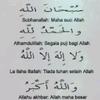 سُبْحَانَ اللهِ
Subhanallah: Maha suci Allah
وَالْحَمْدُ لِلّٰهِ
Alhamdulillah: Segala puji bagi Allah
وَلَا إِلٰهَ إِلَّا اللهُ
La ilaha illallah: Tiada tuhan selain Allah
وَاللهُ أَكْبَرُ
Allahu akhbar: Allah maha besar